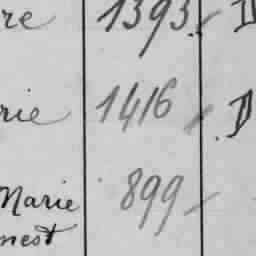 re 1393. D
rie 1416 D
Marie 899
nest